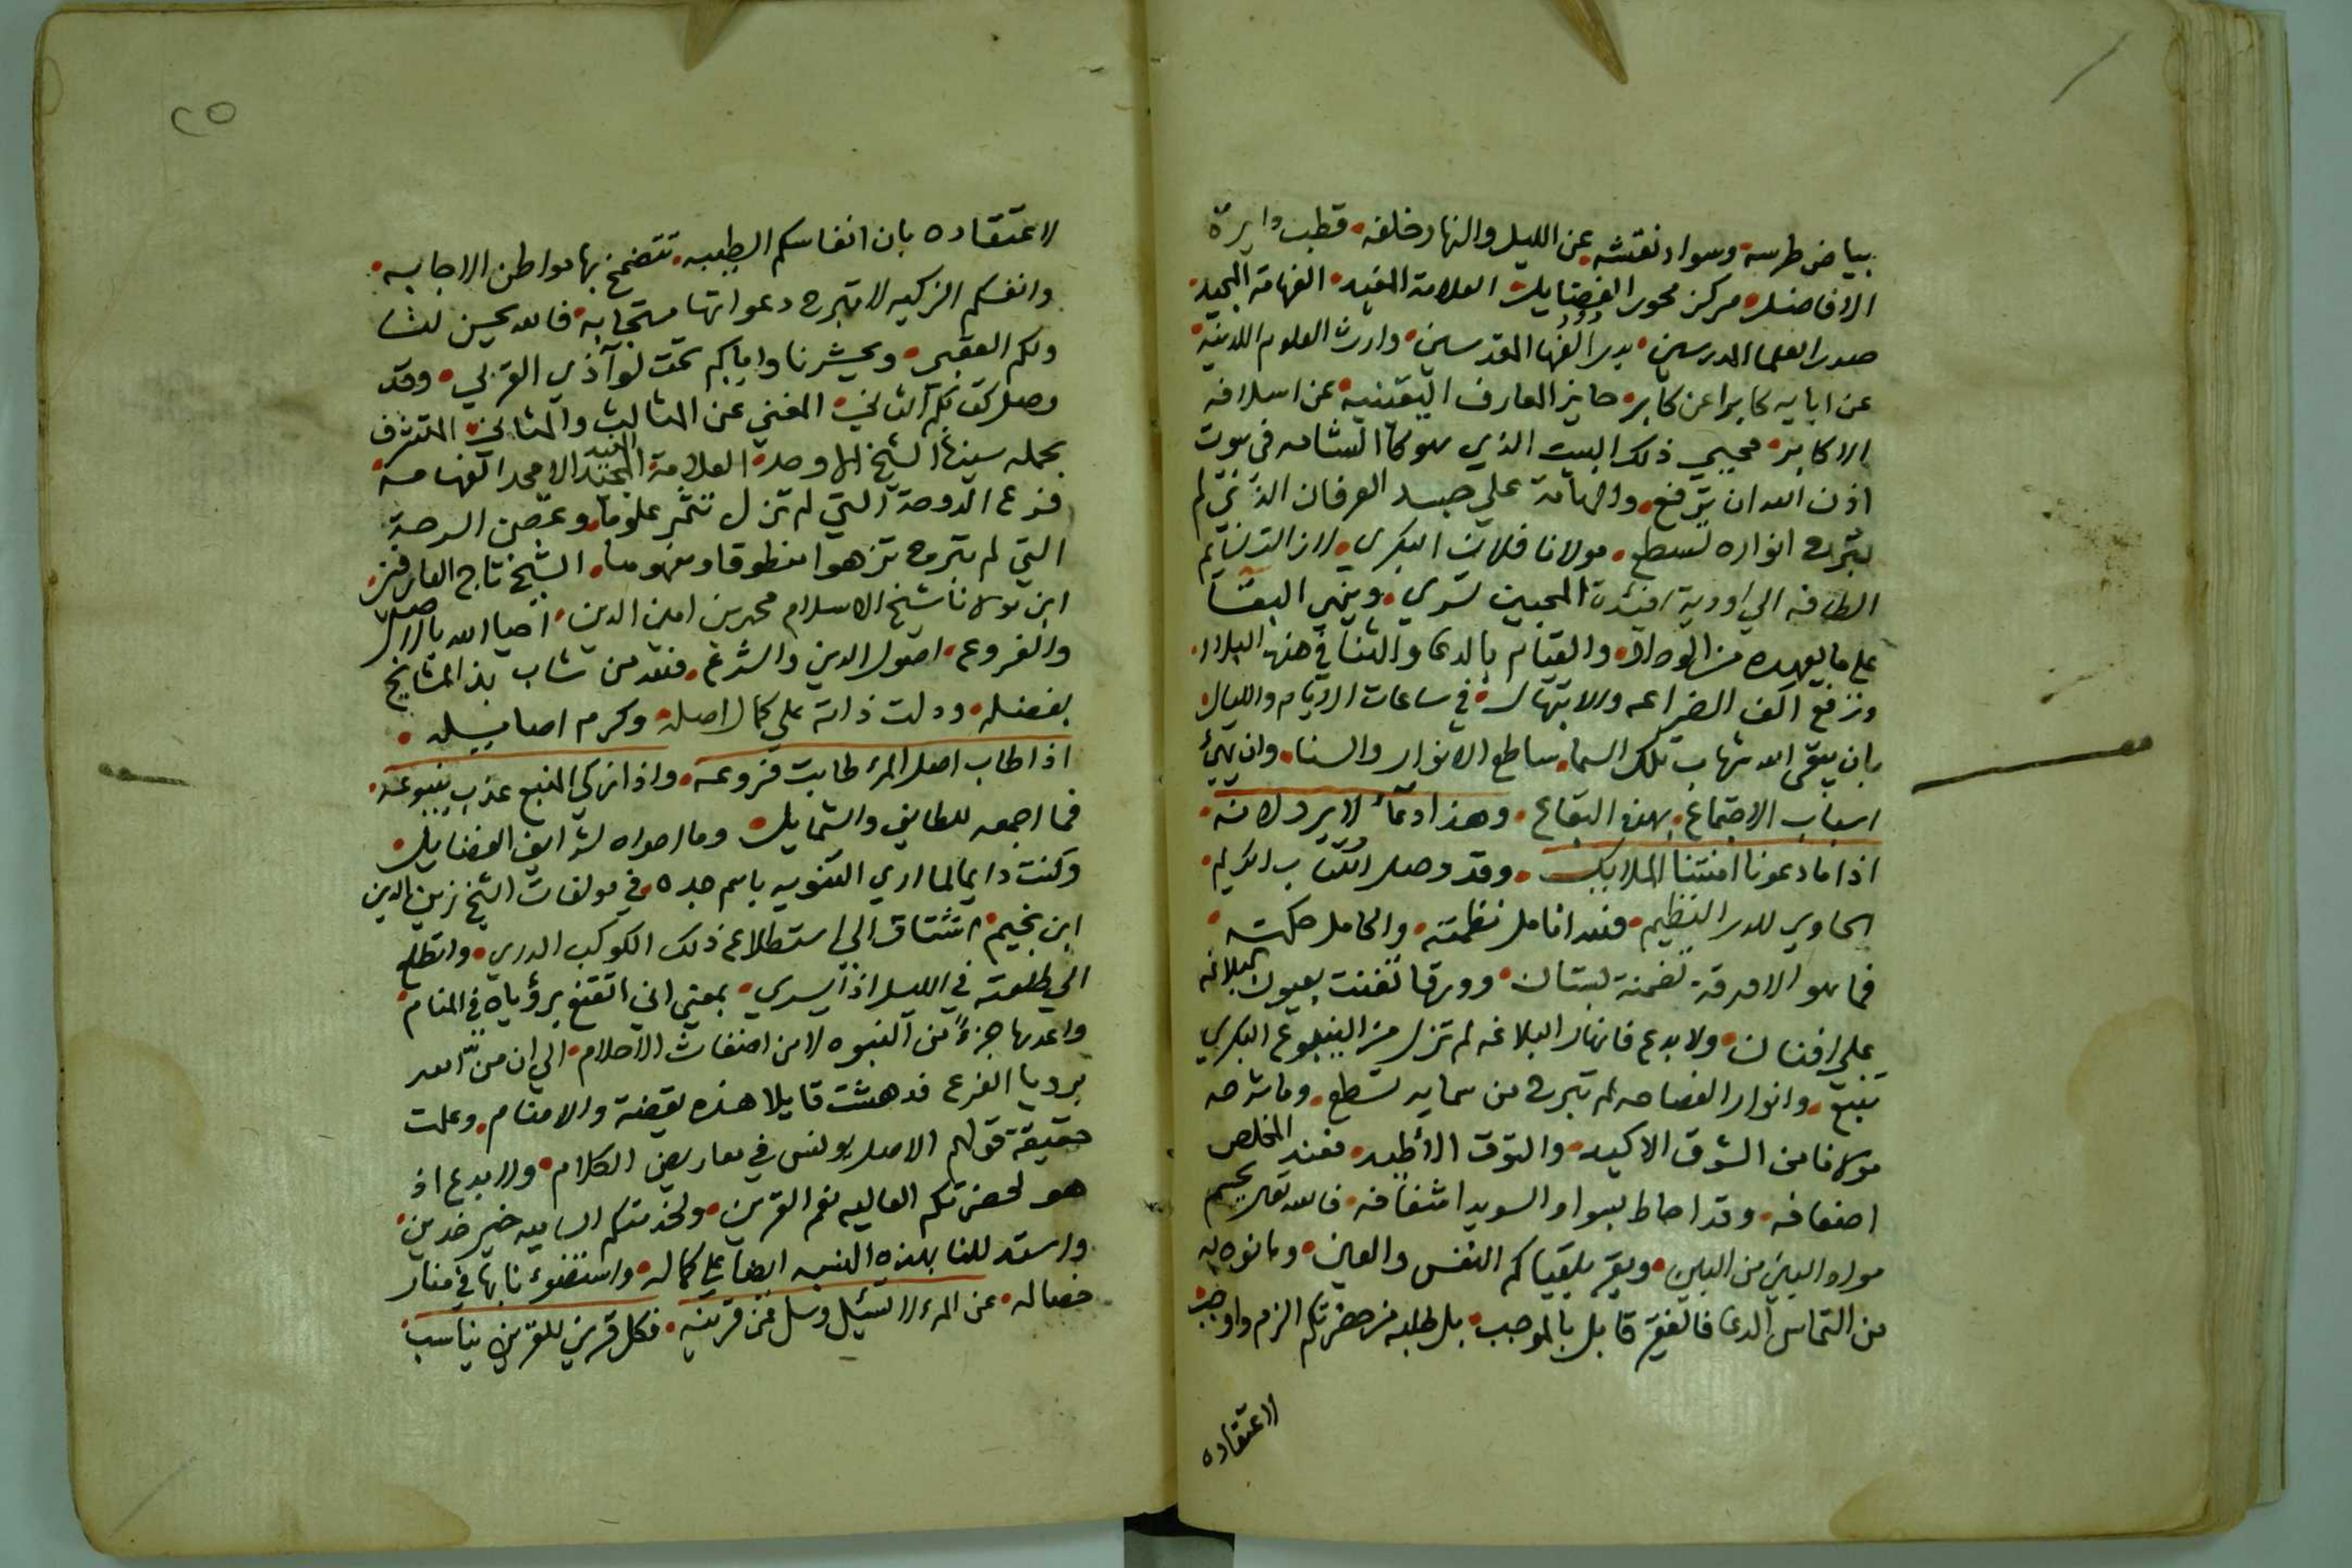 بياض طرسه وسواد نقشه عن الليل والنهار خلفه قطب دايرة
الافاضل مركز محور الفضايل العلامة المفيد الفهامة المجيد
صدر العلما المدرسين بدر الفقها المقدسين وارث العلوم اللدنية
عن ابايه كابرا عن كابر حايز المعارف اليقينيه عن اسلافه
الاكابر محيي ذلك البيت الذي هو كالشامه في بيوت
اذن الله ان ترفع والهامة علي جسد العرفان الذي لم
تبرح انواره تسطع مولانا فلان البكري لازالت نسايم
الطافه الي اودية افئدة المحبين تسري وينهي البقا
علي ما يعهده من الوداد والقيام بالدعا والثنا في هذه البلاد
ونرفع اكف الضراعه والابتهال في ساعات الايام والليال
بان يبقي الله شهاب تلك السما ساطع الانوار والسنا وان يهيئ
اسباب الاجتماع بهذه البقاع وهذا دعاء لا يرد لانه
اذا ما دعونا امنتنا الملايك وقد وصل الكتاب الكريم
الحاوي للدر النظيم فلله انامل نظمته وانامل حكته
فما هو الا ورقة تضمنة بستان وورقا تغنت بعيون البلاغه
علي افنان ولا بدع فانهار البلاغه لم تزل من الينبوع البكري
تنبع وانوار الفصاحه لم تبرح من سمايه تسطع وما شرحه
مولانا من الشوق الاكيد والتوق الأطيد فعند المخلص
اضعافه وقد احاط بسواد السويدا شغافه فالله تعالي يحسم
مواد البين من البين ويقر بلقياكم النفس والعين وما نوه به
من التماس الدعا فالفقير قابل بالموجب بل طلبه من حضرتكم الزم واوجب
لاعتقاده
٢٥
لاعتقاده بان انفاسكم الطيبه تتضمخ بها مواطن الاجابه
وانفسكم الزكيه لا تبرح دعواتها مستجابه فالله يحسن لنا
ولكم العقبي ويحشرنا واياكم تحت لوآ ذي القربي وقد
وصل كتابكم الثاني المغني عن المثالث والمثاني المتشرف
بحمله سيدنا الشيخ الاوحد العلامة الامجد الفهامه
فرع الدوحة التي لم تزل تثمر علوما وغصن السرحة
التي لم تبرح تزهوا منطوقا ومفهوما الشيخ تاج العارفين
ابن مولانا شيخ الاسلام محمد بن امين الدين احيا الله به الاصل
والفروع اصول الدين والشرع فلله من شاب بذ المشايخ
بفضله ودلت ذاته علي كمال اصله وكرم اصايله
اذا طاب اصل المرء طابت فروعه واذا زكي المنبع عذب ينبوعه
فما اجمعه للطايف والشمايل وما احواه لشرايف الفضايل
وكنت دايما لما اري التنويه باسم جده في مولفات الشيخ زين الدين
ابن نجيم اشتاق الي استطلاع ذلك الكوكب الدري واتطلع
الي طلعته في الليل اذا يسري بمعني اني اتقنع برؤياه في المنام
واعدها جزءً من النبوه لا من اضغاث الاحلام الي ان من الله
برويا الفرع فدهشت قايلا هذه يقضة والا منام وعلمت
حقيقة قولهم الاصل يونس في معاريض الكلام ولا بدع اذ
هو لحضرتكم العاليه نعم القرين ولخدمتكم الساميه خير خدين
واستدللنا بهذه النسبه ايضا علي كماله واستضوءنا بها في منار
خصاله عن المرء لا تسئل وسل عن قرينه فكل قرين للقرين يناسب